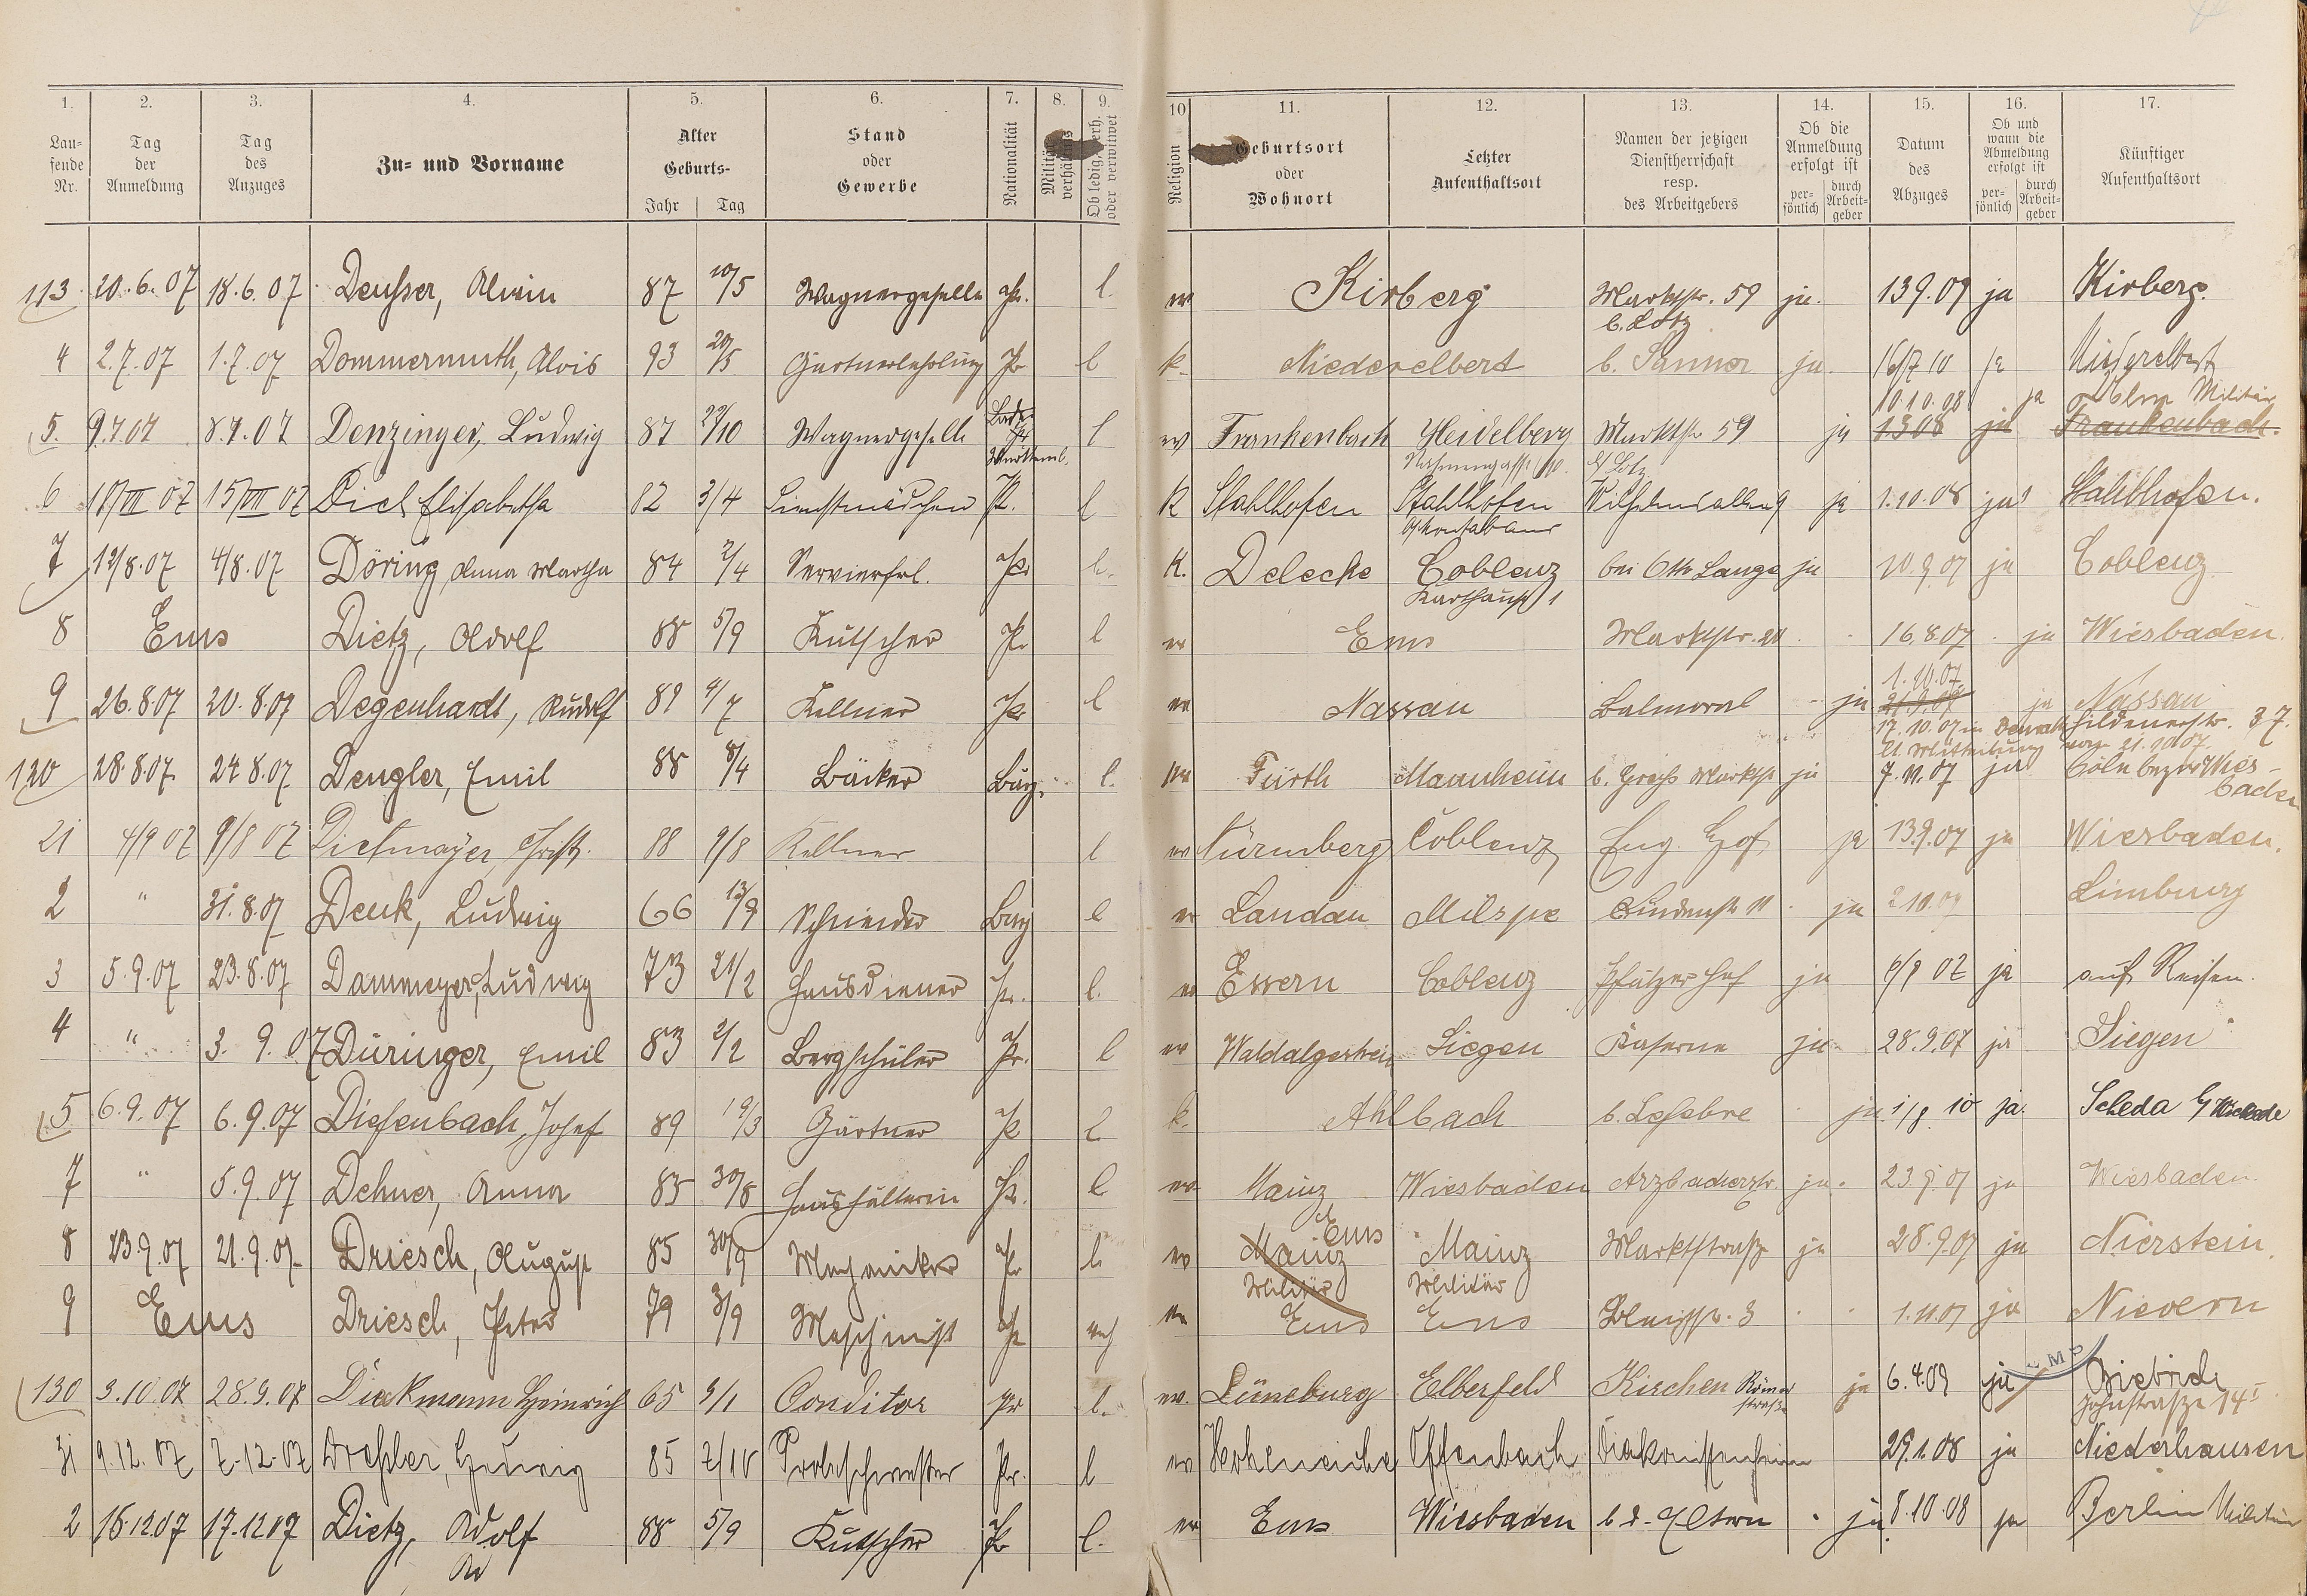 1. 2. 3. 4. 5. 6. 7. 8. 9. 10 11. 12. 13. 14. 15. 16. 17.
Lau-fende Nr. Tag der Anmeldung Tag des Anzuges Zu- und Vorname Alter Geburts- Jahr Tag Stand oder Gewerbe Nationalität Militär-verhältnis Ob ledig, verh. oder verwitwet Religion Geburtsort oder Wohnort Letzter Aufenthaltsort Namen der jetzigen Dienstherrschaft resp. des Arbeitgebers Ob die Anmeldung erfolgt ist per-sönlich durch Arbeit-geber Datum des Abzuges Ob und wann die Abmeldung erfolgt ist per-sönlich durch Arbeit-geber Künftiger Aufenthaltsort
113 20.6.07 18.6.07 Deusser, Alwin 87 10/5 Wagnergeselle Pr. l. ev Kirberg Marktstr. 59 ja 13.9.09 ja Kirberg.
b. Lotz
4 2.7.07 1.7.07 Dommermuth, Alois 93 20/5 Gärtnerlehrling Pr l k. Niederelbert b. Sannor ja 16/7 10 ja Niederelbert
10.10.08 ja Militär
5. 9.7.07 8.7.07 Denzinger, Ludwig 87 29/10 Wagnergeselle l ev Frankenbach Heidelberg Marktstr 59 ja 1308 ja Frankenbach.
Württemb. b/ Lotz
6 18/VII 07 15/VII 07 Diel Elisabetha 82 3/4 Dienstmädchen Pr. l k Stahlhofen Stahlhofen Wilhelmsallee 9 ja 1.10.08 ja Stahlhofen.
b/ Montabaur
7 12/8.07 4/8.07 Döring Anna Martha 84 2/4 Servierfrl. Pr l. K. Delecke Coblenz bei Otto Lange ja 10.9.07 ja Coblenz
Karthause 1
8 Ems Dietz, Adolf 88 5/9 Kutscher Pr l ev Ems Marktstr. 20 16.8.07 ja Wiesbaden.
1.10.07
9 26.8.07 20.8.07 Degenhardt, Rudolf 89 4/7 Kellner Pr l ev Nassau Balmoral ja ja Nassau
17.10.07 in Hildenerstr. 37.
lt. Mitteilung vom 21.10.07.
120 28.8.07 24.8.07. Dengler, Emil 88 8/4 Bäcker Bay. l. ev Fürth Mannheim ja 7.11.07 ja Cöln bezw Wies-
baden
21 4/9 07 9/8 07 Dietmayer, 88 9/8 Kellner l ev Nürnberg Coblenz Eng. Hof ja 13.9.07 ja Wiesbaden.
2 " 31.8.07 Denk, Ludwig 66 13/9 Schneider Bay l ev Landau Milspe Lindenstr 11 ja 2.10.07 Limburg
3 5.9.07 23.8.07 Dammeyer, Ludwig 73 21/2 Hausdiener Pr. l. ev Essern Coblenz Pfälzer Hof ja 6/9 07 ja auf Reisen.
4 " 3.9.07 Düringer, Emil 83 2/2 Bergschüler Pr. l ev Waldalgesheim Siegen Kaserne ja 28.9.07 ja Siegen
5 6.9.07 6.9.07 Diefenbach, Josef 89 19/3 Gärtner Pr l. k. Ahlbach b. Lefebre ja 1/8 10 ja. Scheda b/ Wickede
7 " 5.9.07 Dehner, Anna 85 30/8 Haushälterin Pr. l ev Mainz Wiesbaden Arzbacherstr. ja 23.9.07 ja Wiesbaden.
Ems
8 23.9.07 21.9.07 Driesch, August 85 30/9 Mechaniker Pr l. ev Mainz Mainz Marktstraße ja 28.9.07 ja Nierstein.
Militär Militär
9 Ems Driesch, Peter 79 3/9 Maschinist Pr vh ev Ems Ems 1.11.07 ja Nievern
130 3.10.07 28.9.07 Dieckmann Heinrich 65 9/1 Conditor Pr l. ev. Lüneburg Elberfeld Kirchen Römer ja 6.4.09 ja Biebrich
straße Jahnstraße 14 I
31 9.12.07 7.12.07 Dreßler, Hedwig 85 2/10 Probeschwester Pr. l ev Hoheneiche Offenbach Diakonissenheim 29.1.08 ja Niederhausen
2 18.12.07 17.12.07 Dietz, Adolf 88 5/9 Kutscher Pr l. ev Ems Wiesbaden b d. Eltern ja 8.10.08 ja Berlin Militär